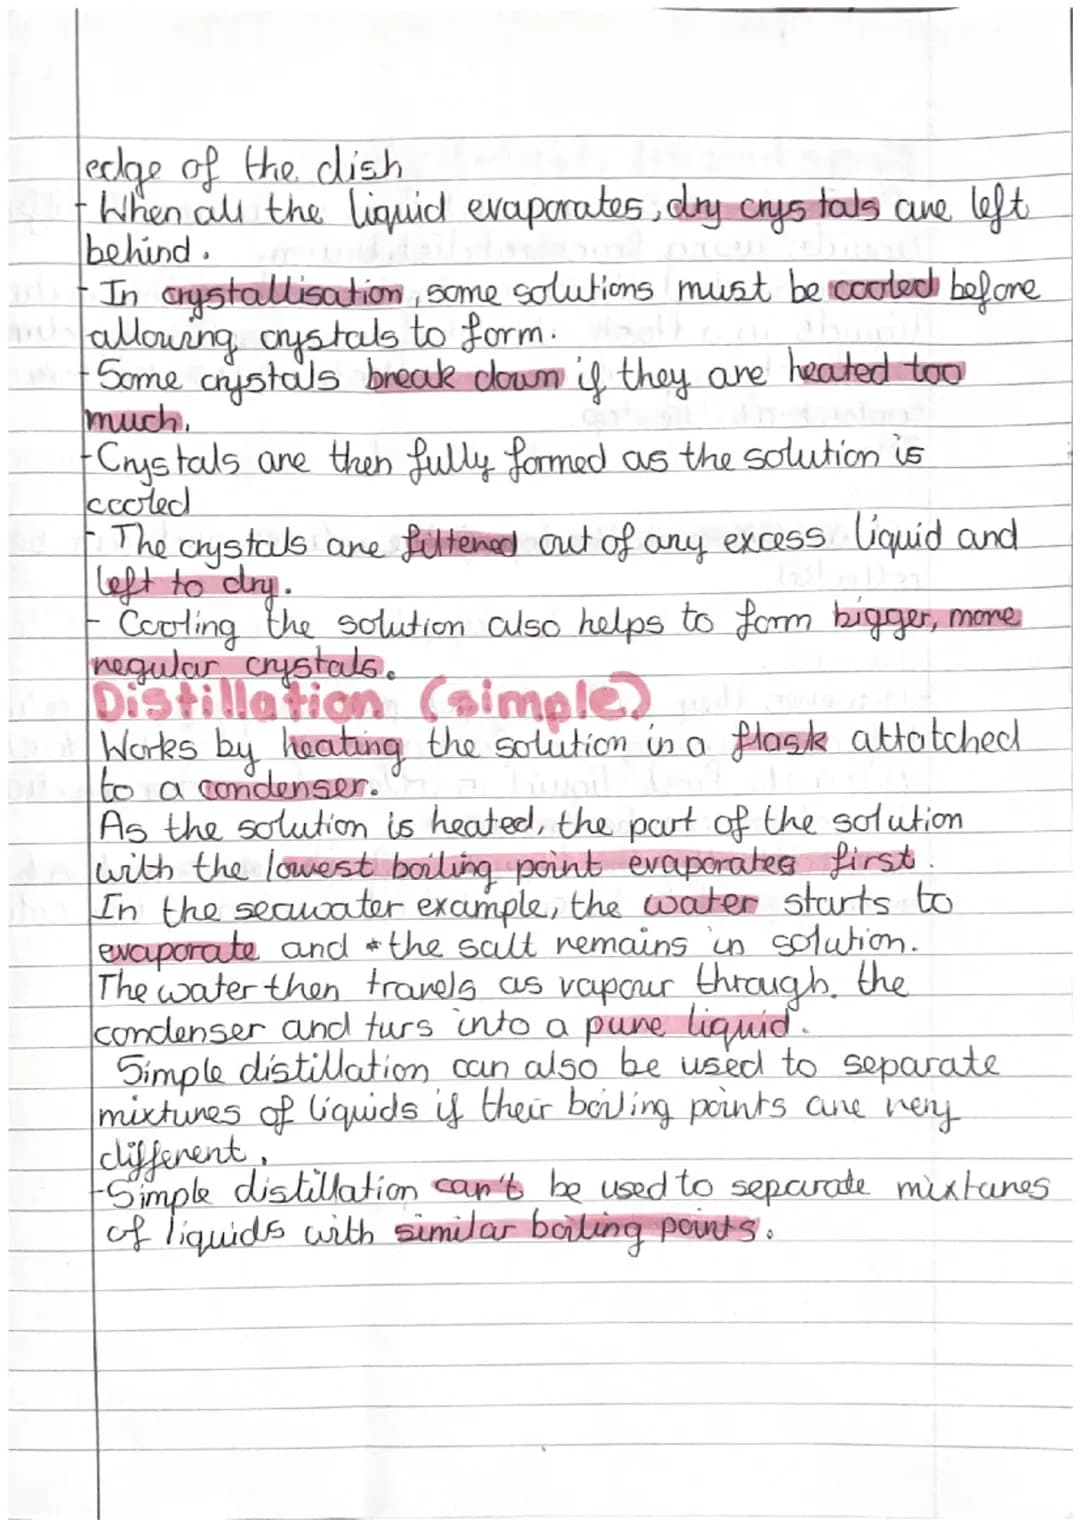 edge of the dish
- When all the liquid evaporates, dry crystals are left
behind.
- In crystallisation, some solutions must be cooled before
allowing crystals to form.
- Some crystals break down if they are heated too
much.
- Crystals are then fully formed as the solution is
cooled
- The crystals are filtered out of any excess liquid and
left to dry.
- Cooling the solution also helps to form bigger, more
regular crystals.
Distillation (simple)
Works by heating the solution in a flask attatched
to a condenser.
As the solution is heated, the part of the solution
with the lowest boiling point evaporates first.
In the seawater example, the water starts to
evaporate and * the salt remains in solution.
The water then travels as vapour through the
condenser and turs into a pure liquid.
Simple distillation can also be used to separate
mixtures of liquids if their boiling points are very
different.
- Simple distillation can't be used to separate mixtures
of liquids with similar boiling points.